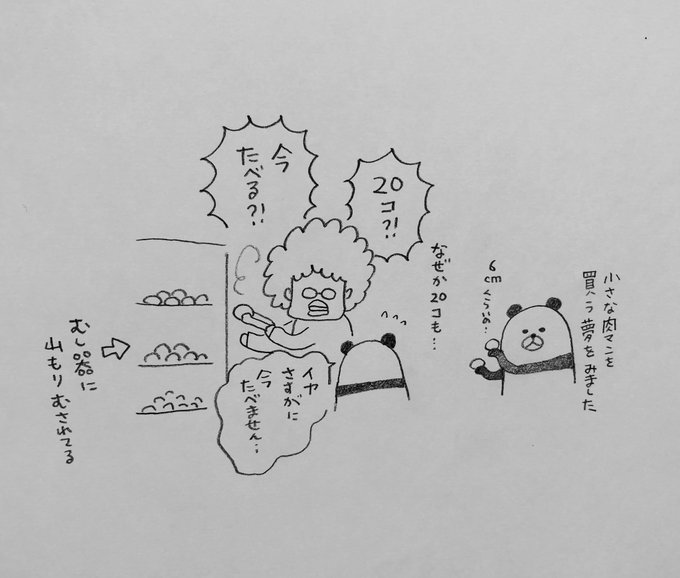 小さな肉マンを
買う夢をみました
6
cm
くらいの…
20
コ?!
なぜか20コも…
今
たべる?!
イヤ
さすがに
今
たべません…
むし器に
山もりむされてる